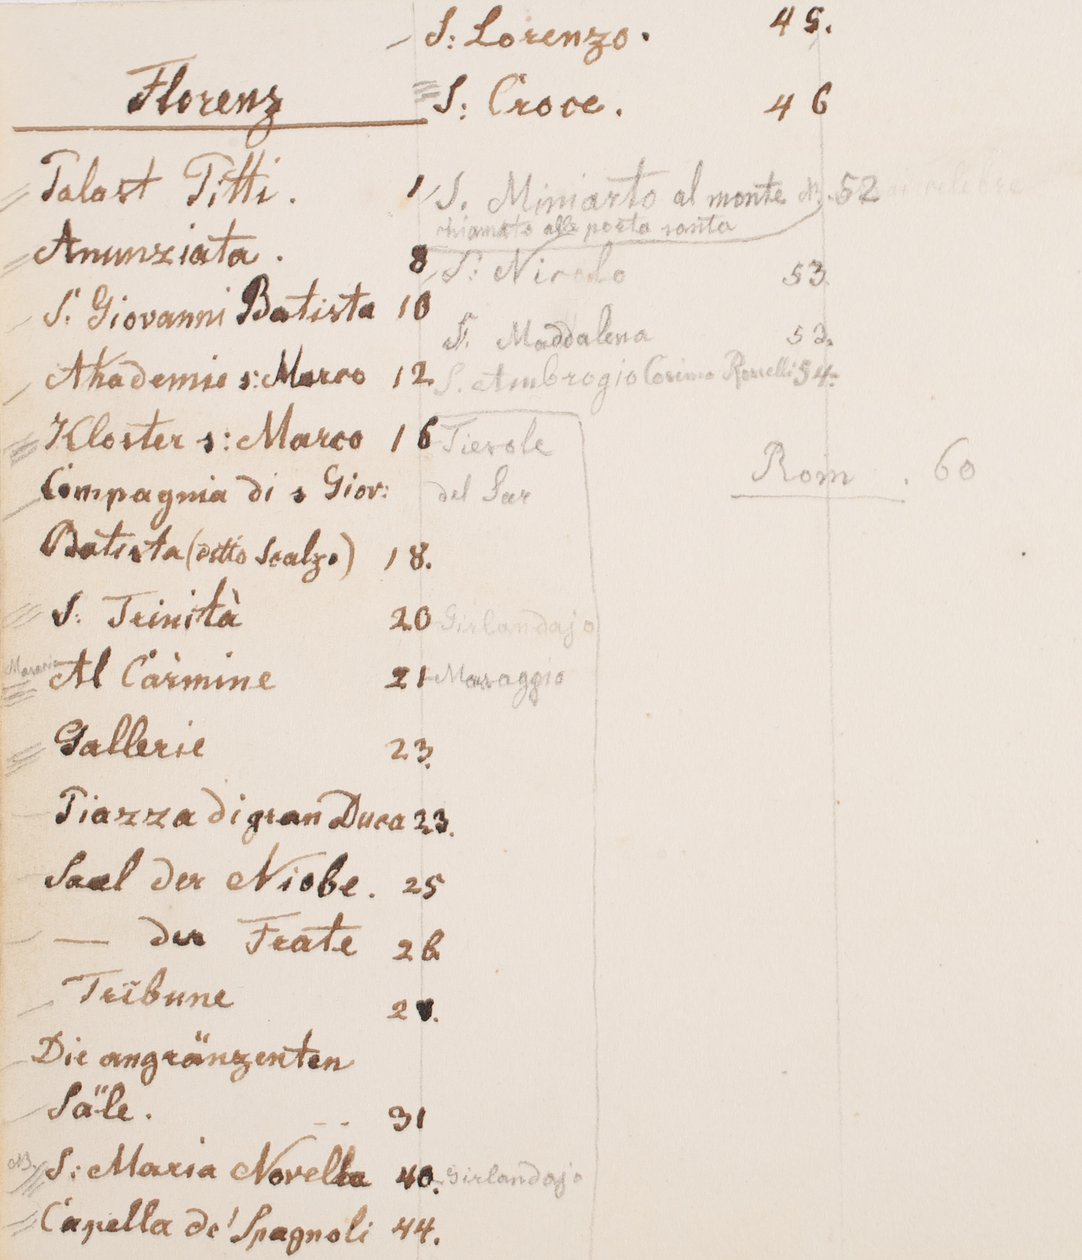 Florenz
Palast Pitti. 1
Anunziata. 8
S: Giovanni Batista 10
Akademie s: Marco 12
Kloster s: Marco 16
Compagnia di s Giov:
Batista (ditto Scalzo) 18.
S: Trinità 20 Girlandajo
Al Cármine 21 Masaggio
Gallerie 23.
Piazza di gran Duca 23.
Saal der Niobe. 25
— der Frate 26
Tribune
Die angränzenten
Säle. 31
S: Maria Novella 40. Girlandajo
Capella de' Spagnoli 44.
S: Lorenzo. 45.
S: Croce. 46
S. Miniarto al monte 52
chiamato alle porta santa
S: Nicolo 53.
S. Maddalena 53.
S. Ambrogio Cosimo Rosselli 54.
Fiesole
del Sar
Rom. 60